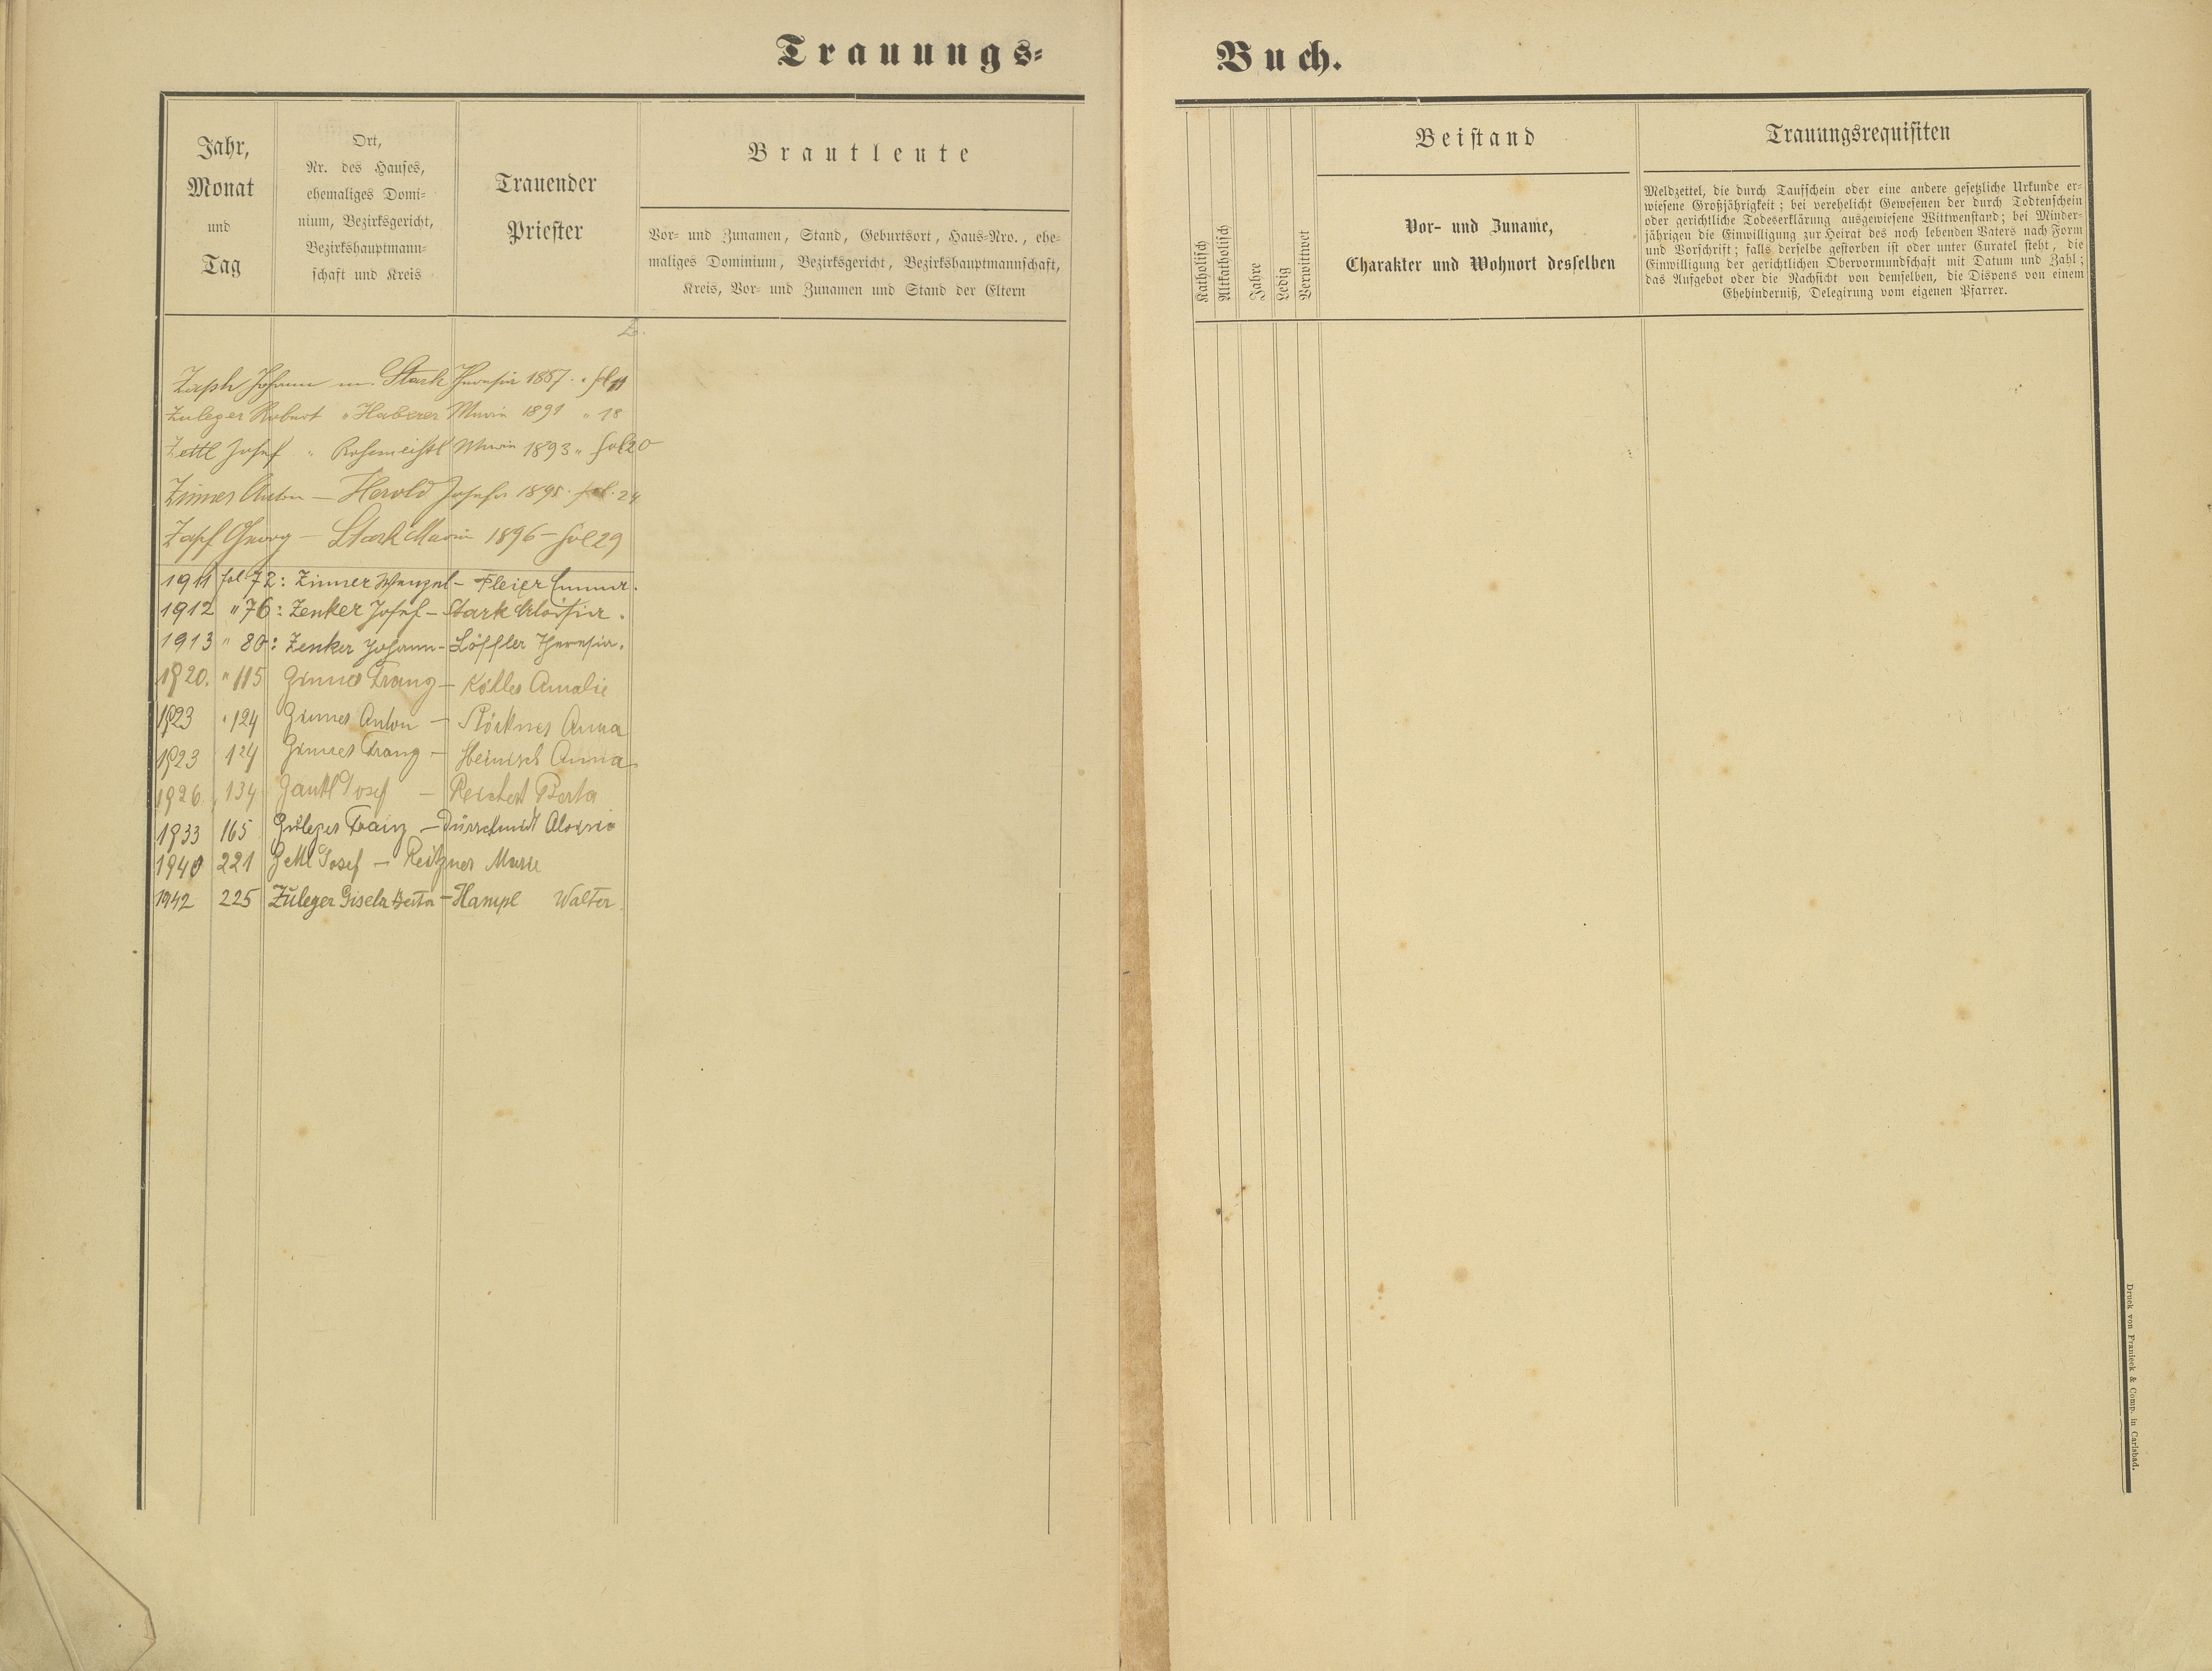 Trauungs-
Jahr,
Monat
und
Tag
Ort,
Nr. des Hauses,
ehemaliges Domi-
nium, Bezirksgericht,
Bezirkshauptmann-
schaft und Kreis
Trauender
Priester
Brautleute
Vor- und Zunamen, Stand, Geburtsort, Haus-Nro., ehe-
maliges Dominium, Bezirksgericht, Bezirkshauptmannschaft,
Kreis, Vor- und Zunamen und Stand der Eltern
Z.
Johann m. Stark Theresia 1887. fol 11
Zuleger Robert " Haberer Maria 1891 " 18
Zettl Josef " Rosmeisl Maria 1893 " fol 20
Zinner Anton — Herold Josefa 1895. fol. 24
Zapf Georg — Stark Maria 1896 – fol 29
1911 fol 72: Zinner Wenzel – Fleier Emma.
1912 " 76: Zenker Josef – Stark Aloisia.
1913 " 80: Zenker Johann – Löffler Theresia.
1920. " 115 Zinner Franz – Köhler Amalie
1923 " 124 Zinner Anton – Anna
1923 124 Zinner Franz – Heinisch Anna
1926 134 Josef – Reichert Berta
1933 165 Zuleger Franz – Dürrschmidt Aloisia
1940 221 Zettl Josef – Reitzner Marie
1942 225 Züleger Gisela Berta – Hampl Walter.
Buch.
Katholisch
Altkatholisch
Jahre
Ledig
Verwittwet
Beistand
Vor- und Zuname,
Charakter und Wohnort desselben
Trauungsrequisiten
Meldzettel, die durch Taufschein oder eine andere gesetzliche Urkunde er-
wiesene Großjährigkeit; bei verehelicht Gewesenen der durch Todtenschein
oder gerichtliche Todeserklärung ausgewiesene Wittwenstand; bei Minder-
jährigen die Einwilligung zur Heirat des noch lebenden Vaters nach Form
und Vorschrift; falls derselbe gestorben ist oder unter Curatel steht, die
Einwilligung der gerichtlichen Obervormundschaft mit Datum und Zahl;
das Aufgebot oder die Nachsicht von demselben, die Dispens von einem
Ehehinderniß, Delegirung vom eigenen Pfarrer.
Druck von Franieck & Comp. in Carlsbad.